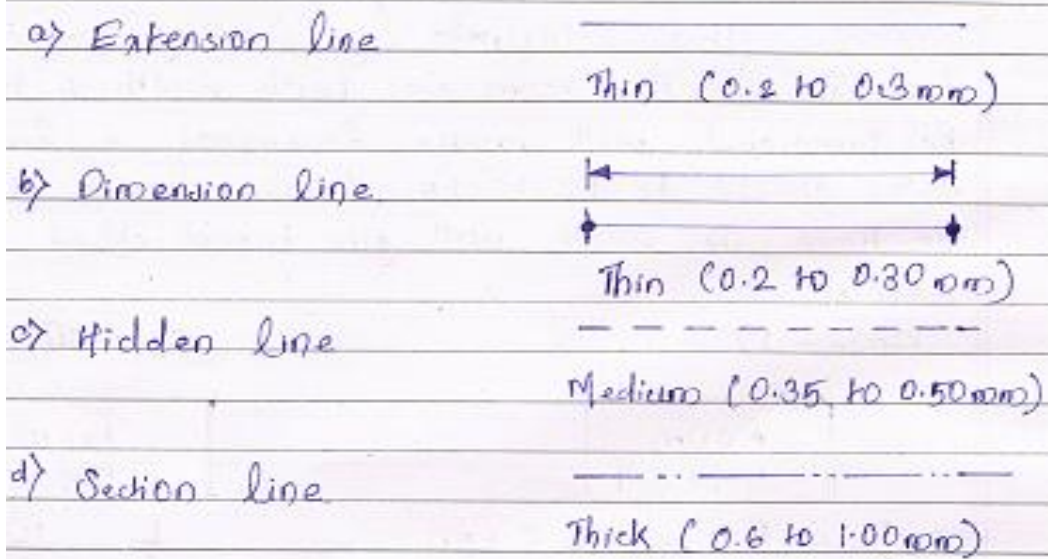 a) Extension line
Thin (0.2 to 0.3mm)
b) Dimension line
Thin (0.2 to 0.30mm)
c) Hidden line
Medium (0.35 to 0.50mm)
d) Section line
Thick (0.6 to 1.00mm)